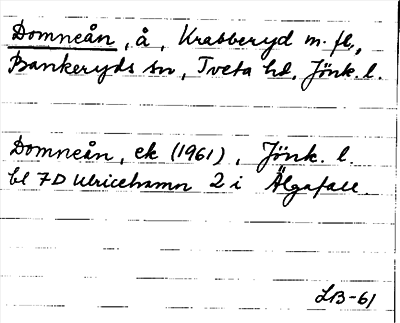 Domneån, å, Krabberyd m. fl.,
Bankeryds sn, Tveta hd, Jönk. l.
Domneån, ek (1961), Jönk. l.
bl 7D Ulricehamn 2 i Älgafall.
LB-61